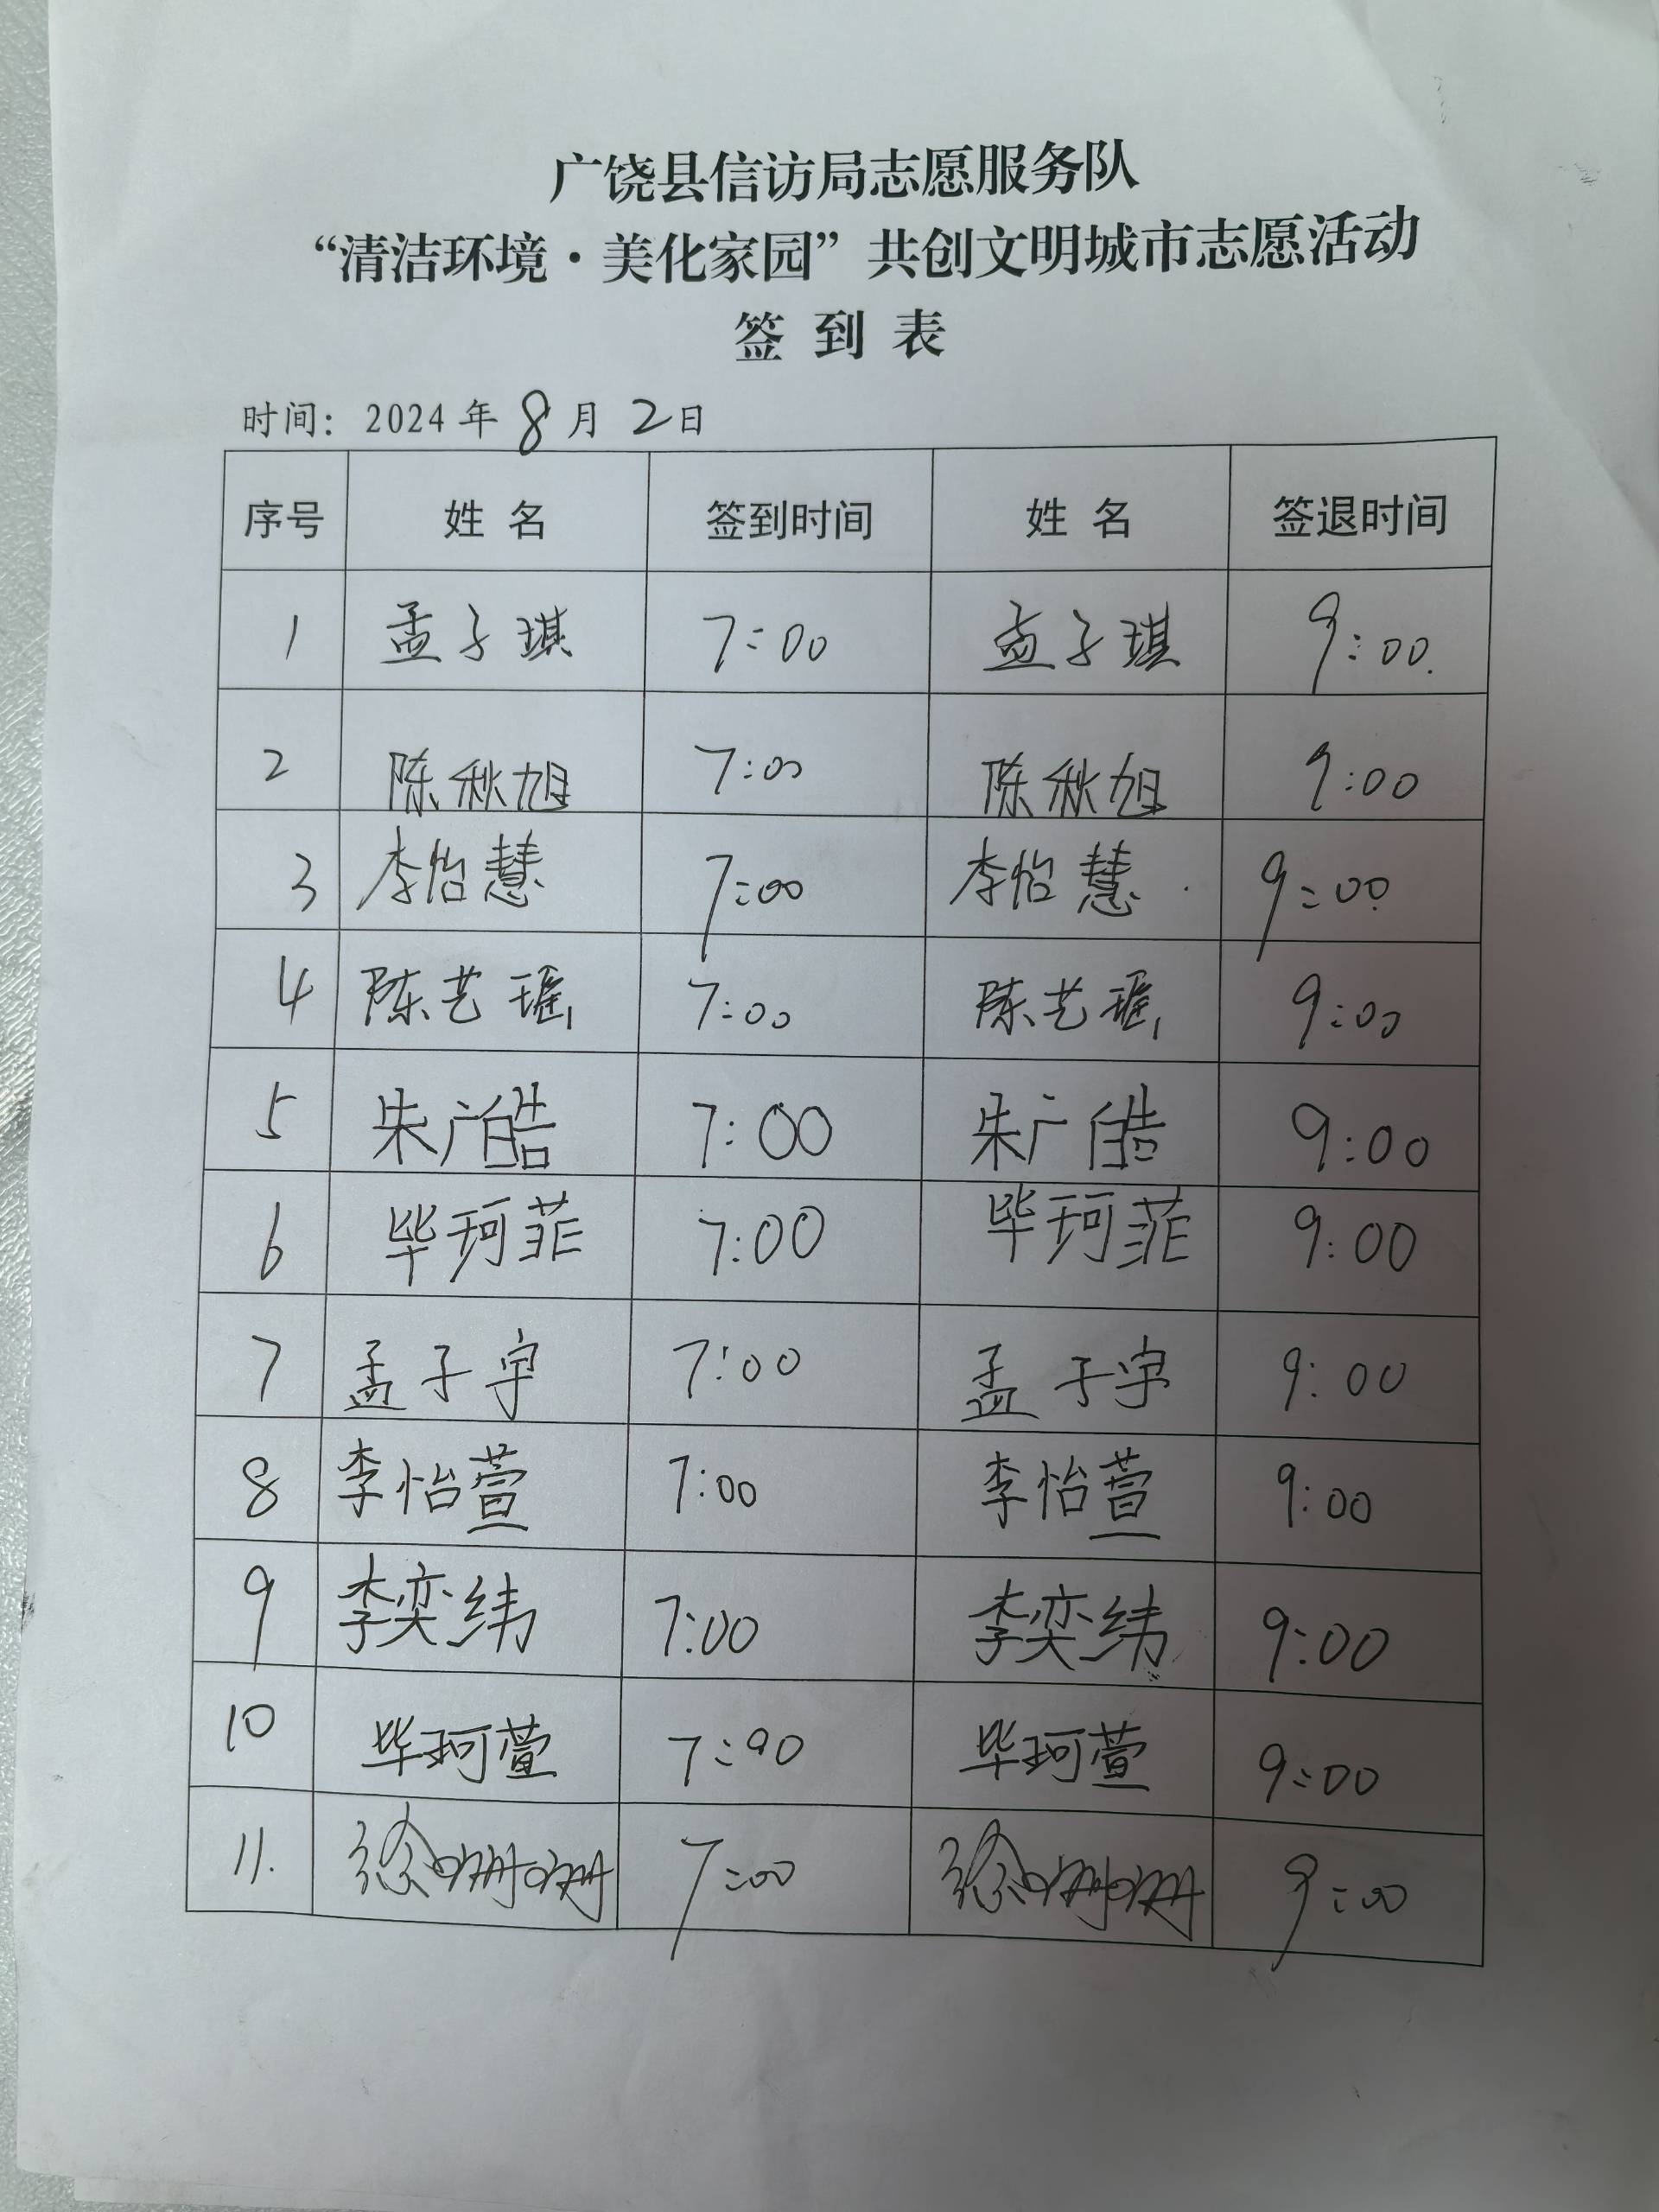 广饶县信访局志愿服务队
“清洁环境·美化家园”共创文明城市志愿活动
签 到 表
时间: 2024 年 8 月 2 日
序号 姓 名 签到时间 姓 名 签退时间
1 孟子琪 7:00 孟子琪 9:00.
2 陈秋旭 7:00 陈秋旭 9:00
3 李怡慧 7:00 李怡慧 9:00
4 陈艺瑶 7:00 陈艺瑶 9:00
5 朱广皓 7:00 朱广皓 9:00
6 毕珂菲 7:00 毕珂菲 9:00
7 孟子宇 7:00 孟子宇 9:00
8 李怡萱 7:00 李怡萱 9:00
9 李奕纬 7:00 李奕纬 9:00
10 毕珂萱 7:00 毕珂萱 9:00
11. 徐珊珊 7:00 徐珊珊 9:00